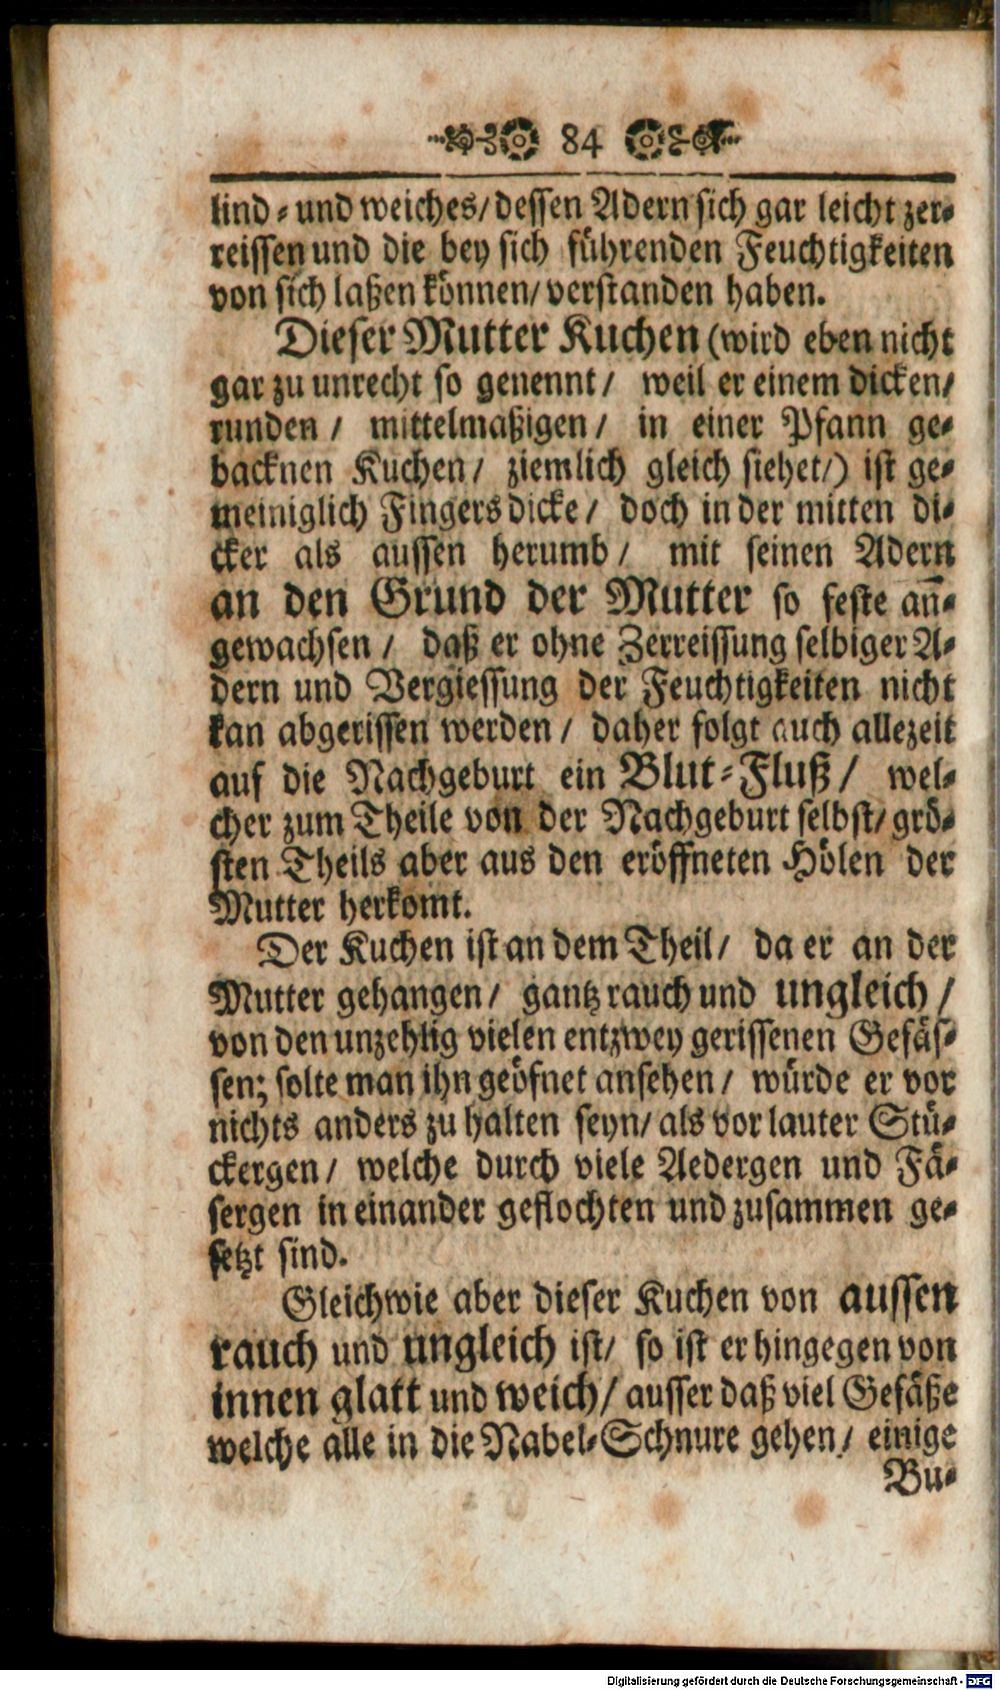 84
lind-und weiches/dessen Adern sich gar leicht zer-
reissen und die bey sich führenden Feuchtigkeiten
von sich laßen können/verstanden haben.
Dieser Mutter Kuchen (wird eben nicht
gar zu unrecht so genennt/ weil er einem dicken/
runden/ mittelmaßigen/ in einer Pfann ge-
backnen Kuchen/ ziemlich gleich siehet/) ist ge-
meiniglich Fingers dicke/ doch in der mitten di-
cker als aussen herumb/ mit seinen Adern
an den Grund der Mutter so feste an̄-
gewachsen/ daß er ohne Zerreissung selbiger A-
dern und Vergiessung der Feuchtigkeiten nicht
kan abgerissen werden/ daher folgt auch allezeit
auf die Nachgeburt ein Blut-Fluß/ wel-
cher zum Theile von der Nachgeburt selbst/grö-
sten Theils aber aus den eröffneten Hölen der
Mutter herkomt.
Der Kuchen ist an dem Theil/ da er an der
Mutter gehangen/ gantz rauch und ungleich/
von den unzehlig vielen entzwey gerissenen Gefäs-
sen; solte man ihn geöfnet ansehen/ würde er vor
nichts anders zu halten seyn/als vor lauter Stü-
ckergen/ welche durch viele Aedergen und Fä-
sergen in einander geflochten und zusammen ge-
setzt sind.
Gleichwie aber dieser Kuchen von aussen
rauch und ungleich ist/ so ist er hingegen von
innen glatt und weich/ausser daß viel Gefäße
welche alle in die Nabel-Schnure gehen/ einige
Bu-
Digitalisierung gefördert durch die Deutsche Forschungsgemeinschaft - DFG